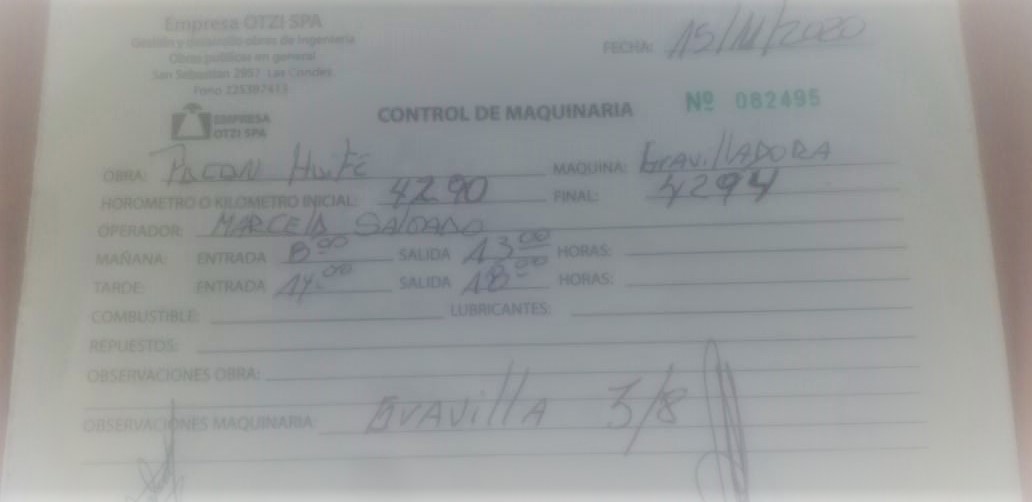 Empresa OTZI SPA
Gestión y desarrollo obras de Ingenieria
Obras publicas en general
San Sebastian 2957 Las Condes
Fono 225387413
FECHA: 15/11/2020
EMPRESA
OTZI SPA
CONTROL DE MAQUINARIA
Nº 082495
OBRA: PACON HuiFE MAQUINA: GravillADORA
HOROMETRO O KILOMETRO INICIAL: 4290 FINAL: 4294
OPERADOR: MARCELA SALGADO
MAÑANA: ENTRADA 8:00 SALIDA 13:00 HORAS:
TARDE: ENTRADA 14:00 SALIDA 18:00 HORAS:
COMBUSTIBLE: LUBRICANTES:
REPUESTOS:
OBSERVACIONES OBRA:
OBSERVACIONES MAQUINARIA: GravillA 3/8